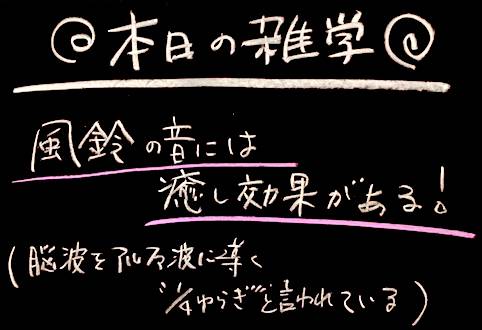 @本日の雑学@
風鈴の音には
癒し効果がある!
(脳波をアルファ波に導く
"1/4ゆらぎ"と言われている)